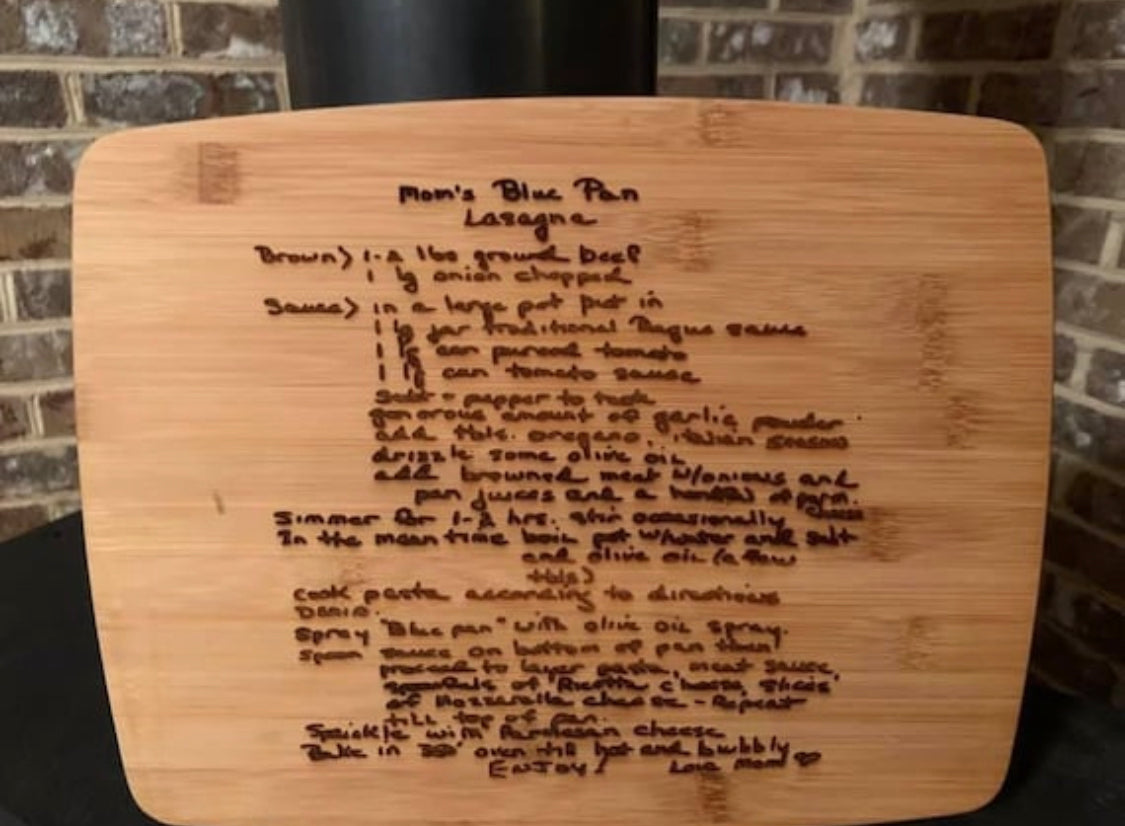 Mom's Blue Pan
Lasagna
Brown > 1-2 lbs ground beef
1 lg onion chopped
Sauce > in a large pot put in
1 lg jar traditional Ragu sauce
1 lg can pureed tomato
1 lg can tomato sauce
Salt + pepper to taste
generous amount of garlic powder
add tbls. oregano, italian
drizzle some olive oil
add browned meat w/onions and
pan juices and a handful of parm.
cheese
Simmer for 1-2 hrs. stir occasionally
In the meantime boil pot w/water and salt
and olive oil (a few
tbls)
cook pasta according to directions
DRAIN.
Spray "Blue pan" with olive oil spray.
Spoon sauce on bottom of pan then
proceed to layer pasta, meat sauce,
spoonfuls of Ricotta cheese, slices
of Mozzarella cheese - Repeat
till top of pan.
Sprinkle with Parmesan cheese
Bake in 350° oven till hot and bubbly
ENJOY! Love Mom ♡